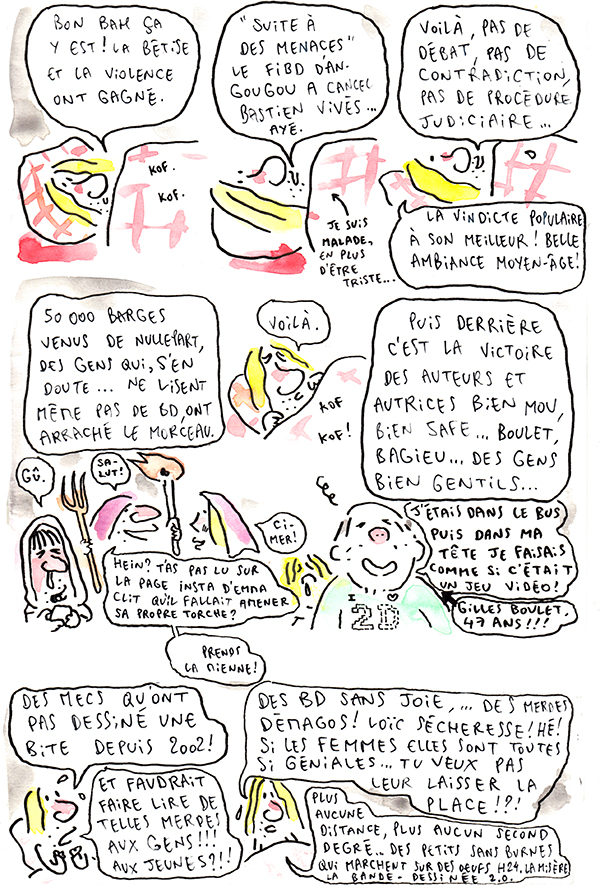 BON BAH ÇA
Y EST! LA BÊTISE
ET LA VIOLENCE
ONT GAGNÉ.
KOF.
KOF.
"SUITE À
DES MENACES"
LE FIBD D'AN-
GOUGOU A CANCEL
BASTIEN VIVÈS...
AYÉ.
JE SUIS
MALADE,
EN PLUS
D'ÊTRE
TRISTE...
VOILÀ, PAS DE
DÉBAT, PAS DE
CONTRADICTION,
PAS DE PROCÉDURE
JUDICIAIRE...
LA VINDICTE POPULAIRE
À SON MEILLEUR! BELLE
AMBIANCE MOYEN-ÂGE!
50 000 BARGES
VENUS DE NULLEPART,
DES GENS QUI, S'EN
DOUTE... NE LISENT
MÊME PAS DE BD, ONT
ARRACHÉ LE MORCEAU.
VOILÀ.
KOF
KOF!
PUIS DERRIÈRE
C'EST LA VICTOIRE
DES AUTEURS ET
AUTRICES BIEN MOU,
BIEN SAFE... BOULET,
BAGIEU... DES GENS
BIEN GENTILS...
GÛ.
SA-
LUT!
CI-
MER!
HEIN? T'AS PAS LU SUR
LA PAGE INSTA D'EMMA
CLIT QU'IL FALLAIT AMENER
SA PROPRE TORCHE?
PRENDS
LA MIENNE!
J'ÉTAIS DANS LE BUS
PUIS DANS MA
TÊTE JE FAISAIS
COMME SI C'ÉTAIT
UN JEU VIDÉO!
I ♥
2D
GILLES BOULET,
47 ANS!!!
DES MECS QU'ONT
PAS DESSINÉ UNE
BITE DEPUIS 2002!
ET FAUDRAIT
FAIRE LIRE DE
TELLES MERDES
AUX GENS!!!
AUX JEUNES?!!
DES BD SANS JOIE,... DES MERDES
DÉMAGOS! LOÏC SÉCHERESSE! HÉ!
SI LES FEMMES ELLES SONT TOUTES
SI GÉNIALES... TU VEUX PAS
LEUR LAISSER LA
PLACE!?!
PLUS
AUCUNE
DISTANCE, PLUS AUCUN SECOND
DEGRÉ... DES PETITS SANS BURNES
QUI MARCHENT SUR DES OEUFS H24. LA MISÈRE
LA BANDE-DESSINÉE 2.0.